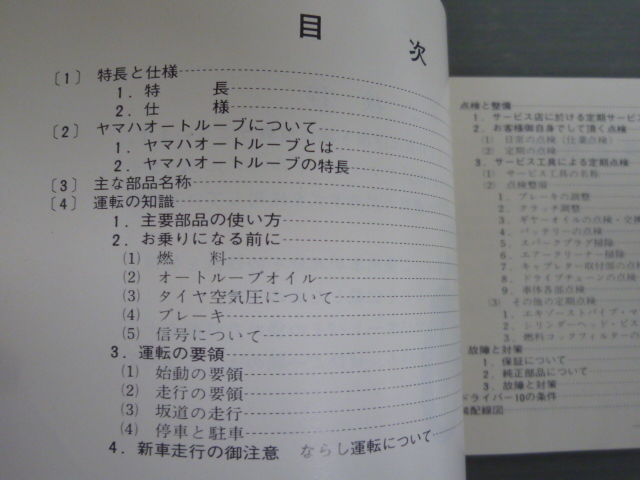 目次
〔1〕 特長と仕様
1. 特　　長
2. 仕　　様
〔2〕 ヤマハオートルーブについて
1. ヤマハオートルーブとは
2. ヤマハオートルーブの特長
〔3〕 主な部品名称
〔4〕 運転の知識
1. 主要部品の使い方
2. お乗りになる前に
(1) 燃　　料
(2) オートルーブオイル
(3) タイヤ空気圧について
(4) ブレーキ
(5) 信号について
3. 運転の要領
(1) 始動の要領
(2) 走行の要領
(3) 坂道の走行
(4) 停車と駐車
4. 新車走行の御注意　ならし運転について
点検と整備
1. サービス店に於ける定期サービ
2. お客様御自身でして頂く点検
(1) 日常の点検(仕業点検)
(2) 定期の点検
3. サービス工具による定期点検
(1) サービス工具の名称
(2) 点検整備
1. ブレーキの調整
2. クラッチ調整
3. ギヤーオイルの点検・交換
4. バッテリーの点検
5. スパークプラグ掃除
6. エアークリーナー掃除
7. キャブレター取付部の点
8. ドライブチェーンの点検
9. 車体各部点検
(3) その他の定期点検
1. エキゾーストパイプ・マ
2. シリンダーヘッド・ピス
3. 燃料コックフィルターの
故障と対策
1. 保証について
2. 純正部品について
3. 故障と対策
ドライバー10の条件
配線図